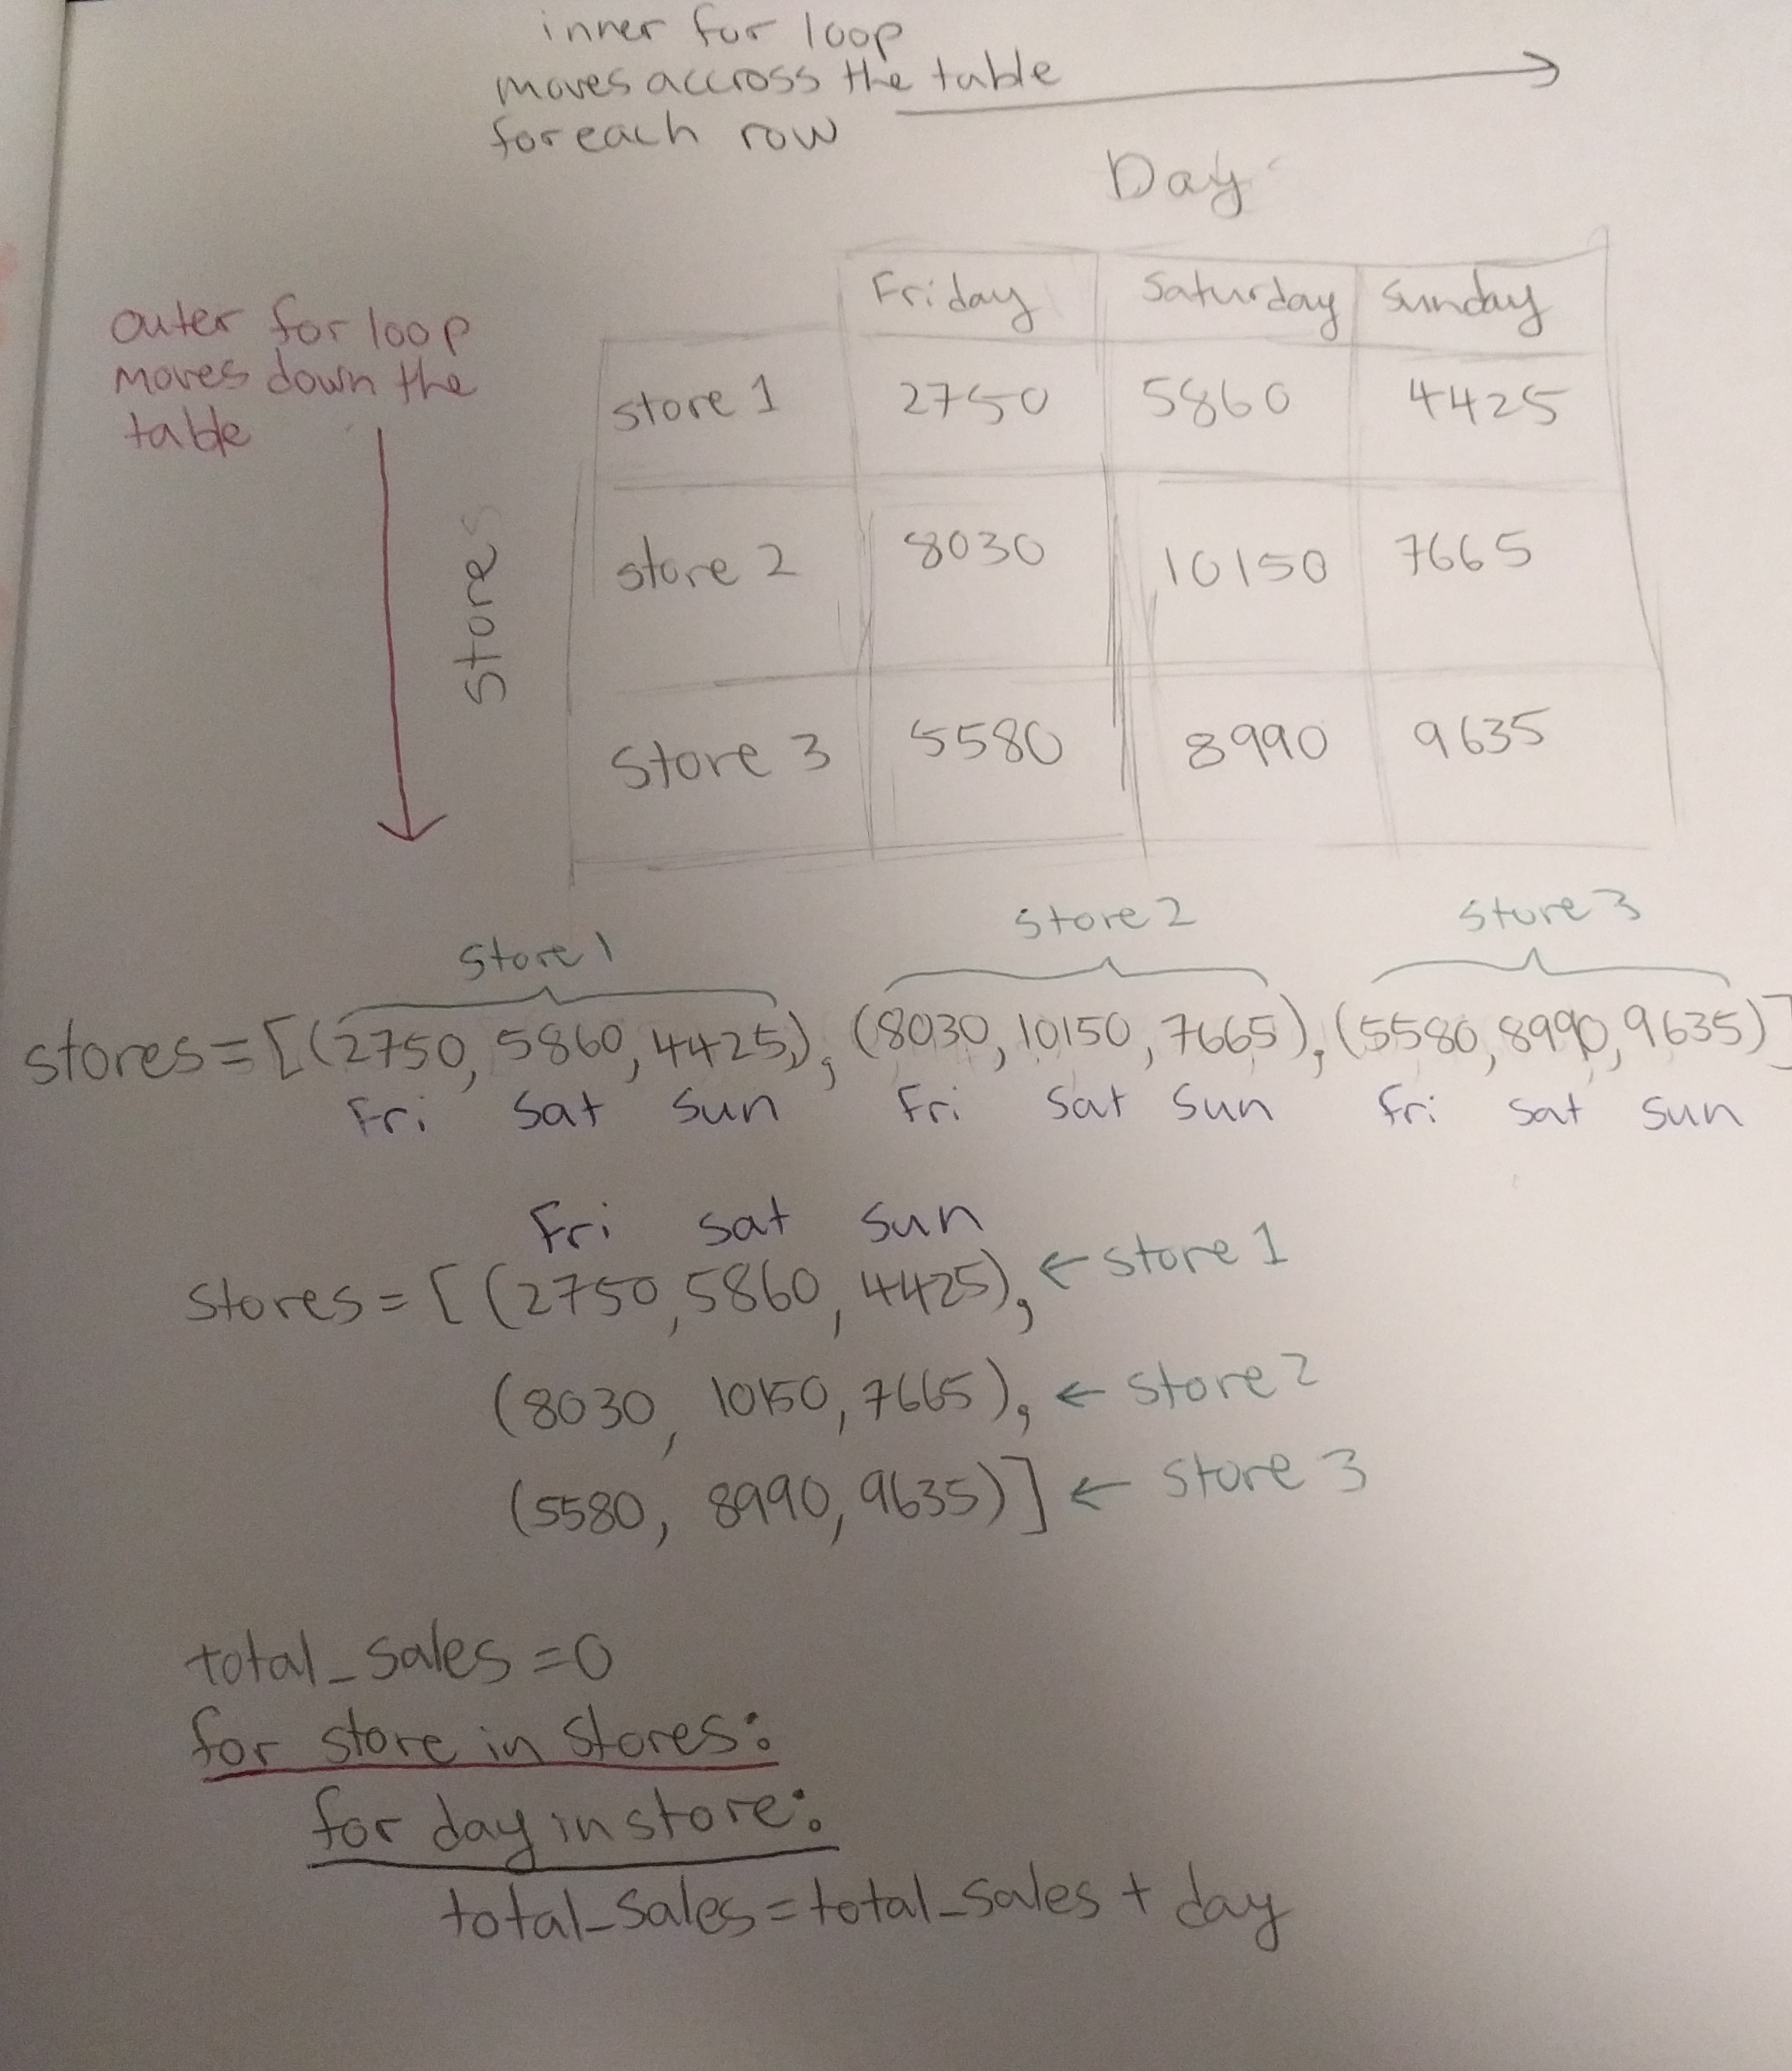 inner for loop
moves accross the table
for each row
Day
outer for loop
moves down the
table
Stores
Friday Saturday Sunday
store 1 2750 5860 4425
store 2 8030 10150 7665
Store 3 5580 8990 9635
Store 1 Store 2 Store 3
stores=[(2750, 5860, 4425), (8030, 10150, 7665), (5580, 8990, 9635)]
Fri Sat Sun Fri Sat Sun Fri Sat Sun
Fri Sat Sun
stores=[(2750, 5860, 4425), ← store 1
(8030, 10150, 7665), ← store 2
(5580, 8990, 9635)] ← Store 3
total_sales=0
for store in stores:
for day in store:
total_sales=total_sales + day